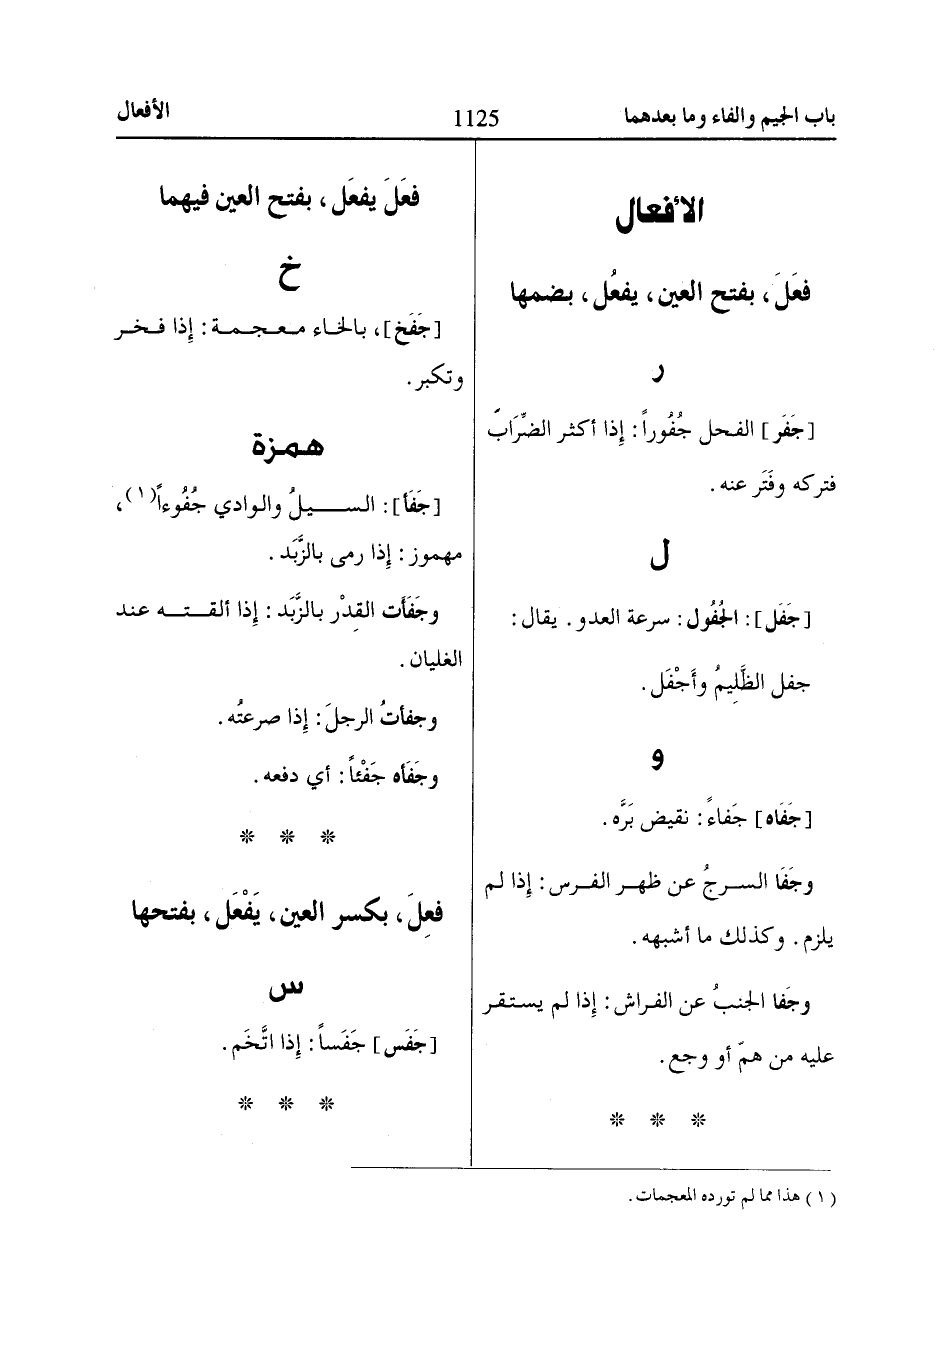 باب الجيم والفاء وما بعدهما 1125 الأفعال
الأفعال
فعَلَ، بفتح العين، يفعُل، بضمها
ر
[جَفَر] الفحل جُفُوراً: إذا أكثر الضِّرَابَ
فتركه وفَتَر عنه.
ل
[جَفَل]: الجُفُول: سرعة العدو. يقال:
جفل الظَّلِيمُ وأَجْفَل.
و
[جَفَاه] جَفاءً: نقيض بَرَّه.
وجَفَا السرجُ عن ظهر الفرس: إذا لم
يلزم. وكذلك ما أشبهه.
وجَفا الجنبُ عن الفراش: إذا لم يستقر
عليه من همّ أو وجع.
* * *
فعَلَ يفعَل، بفتح العين فيهما
خ
[جَفَخ]، بالخاء معجمة: إذا فخر
وتكبر.
همزة
[جَفَأ]: السيلُ والوادي جُفُوءاً(١)،
مهموز: إذا رمى بالزَّبَد.
وجَفَأَت القِدْر بالزَّبَد: إذا ألقته عند
الغليان.
وجفأتُ الرجلَ: إذا صرعتُه.
وجَفَأه جَفْئاً: أي دفعه.
* * *
فعِلَ، بكسر العين، يَفْعَل، بفتحها
س
[جَفَس] جَفَساً: إذا اتَّخَم.
* * *
(١) هذا مما لم تورده المعجمات.